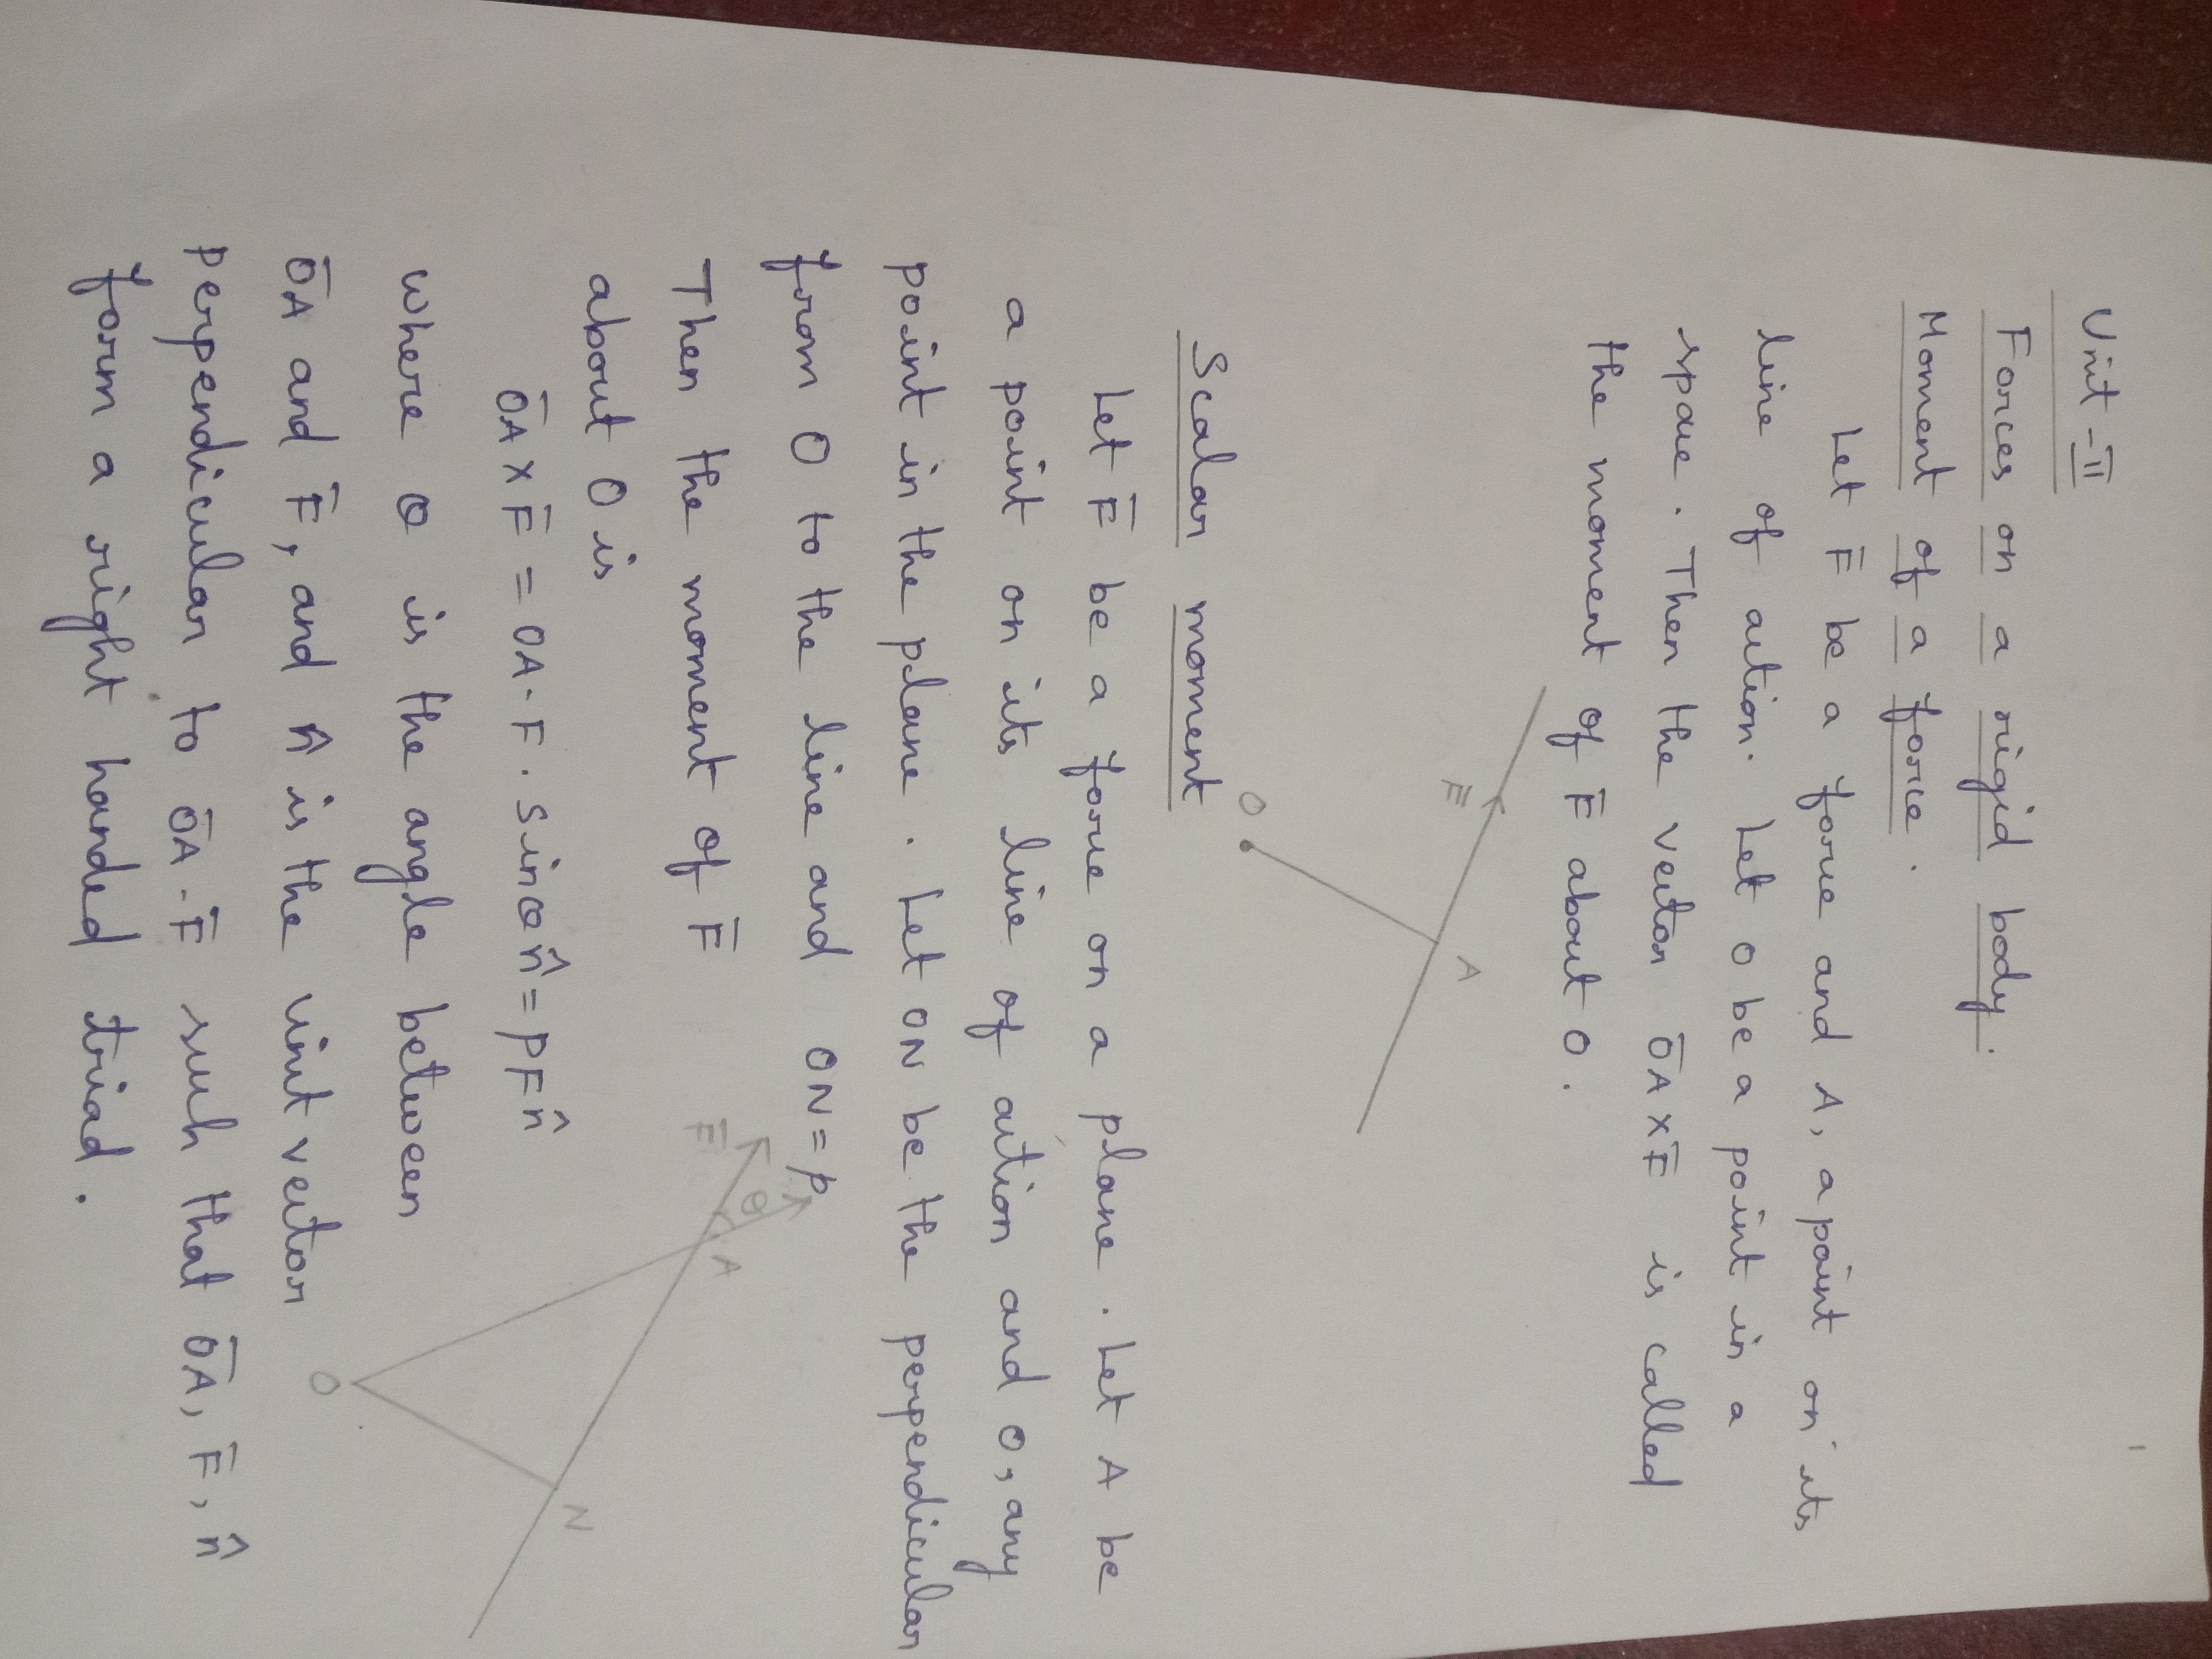 Unit-II
Forces on a rigid body.
Moment of a force.
Let F̄ be a force and A, a point on its
line of action. Let O be a point in a
space. Then the vector ŌA×F̄ is called
the moment of F̄ about O.
F̄
A
O
Scalar moment
Let F̄ be a force on a plane. Let A be
a point on its line of action and O, any
point in the plane. Let ON be the perpendicular
from O to the line and ON=p
Then the moment of F̄
about O is
ŌA×F̄ = OA·F·sinθn̂ = pFn̂
F̄
θ
A
O
N
where θ is the angle between
ŌA and F̄, and n̂ is the unit vector
perpendicular to ŌA·F̄ such that ŌA, F̄, n̂
form a right handed triad.